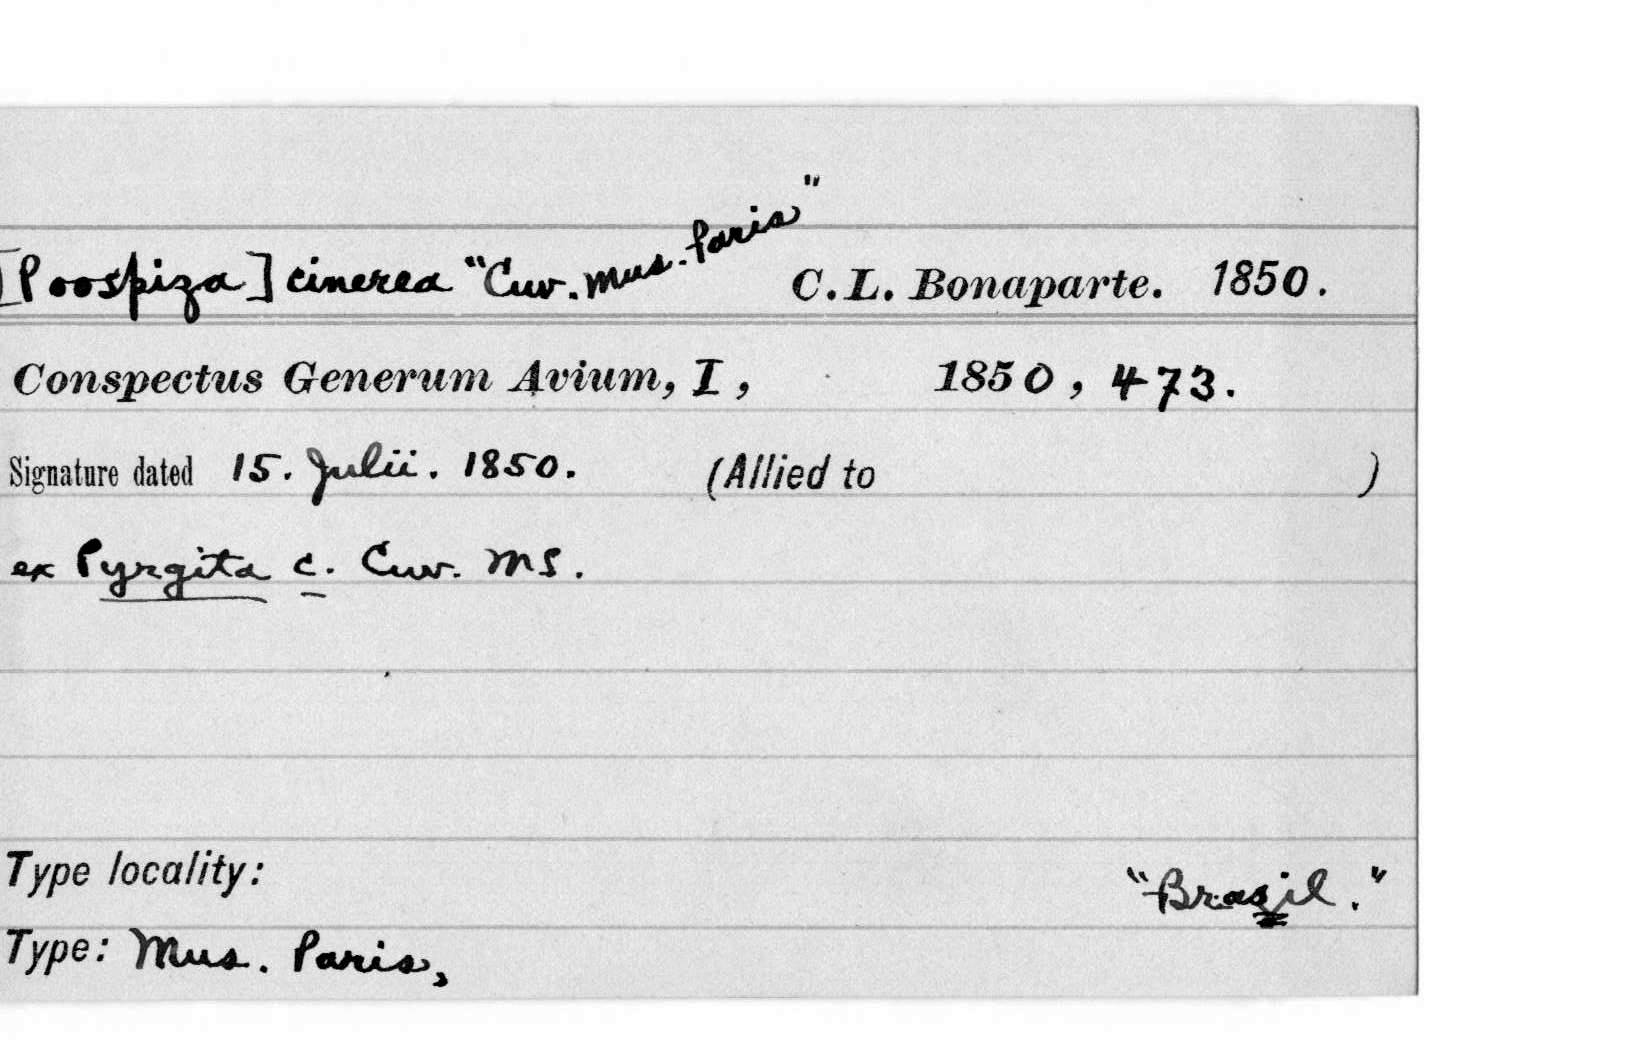 [Poospiza] cinerea "Cuv. Mus. Paris" C.L. Bonaparte. 1850.
Conspectus Generum Avium, I, 1850, 473.
Signature dated 15. Julii. 1850. (Allied to )
ex Pyrgita c. Cuv. MS.
Type locality: "Brasil."
Type: Mus. Paris,